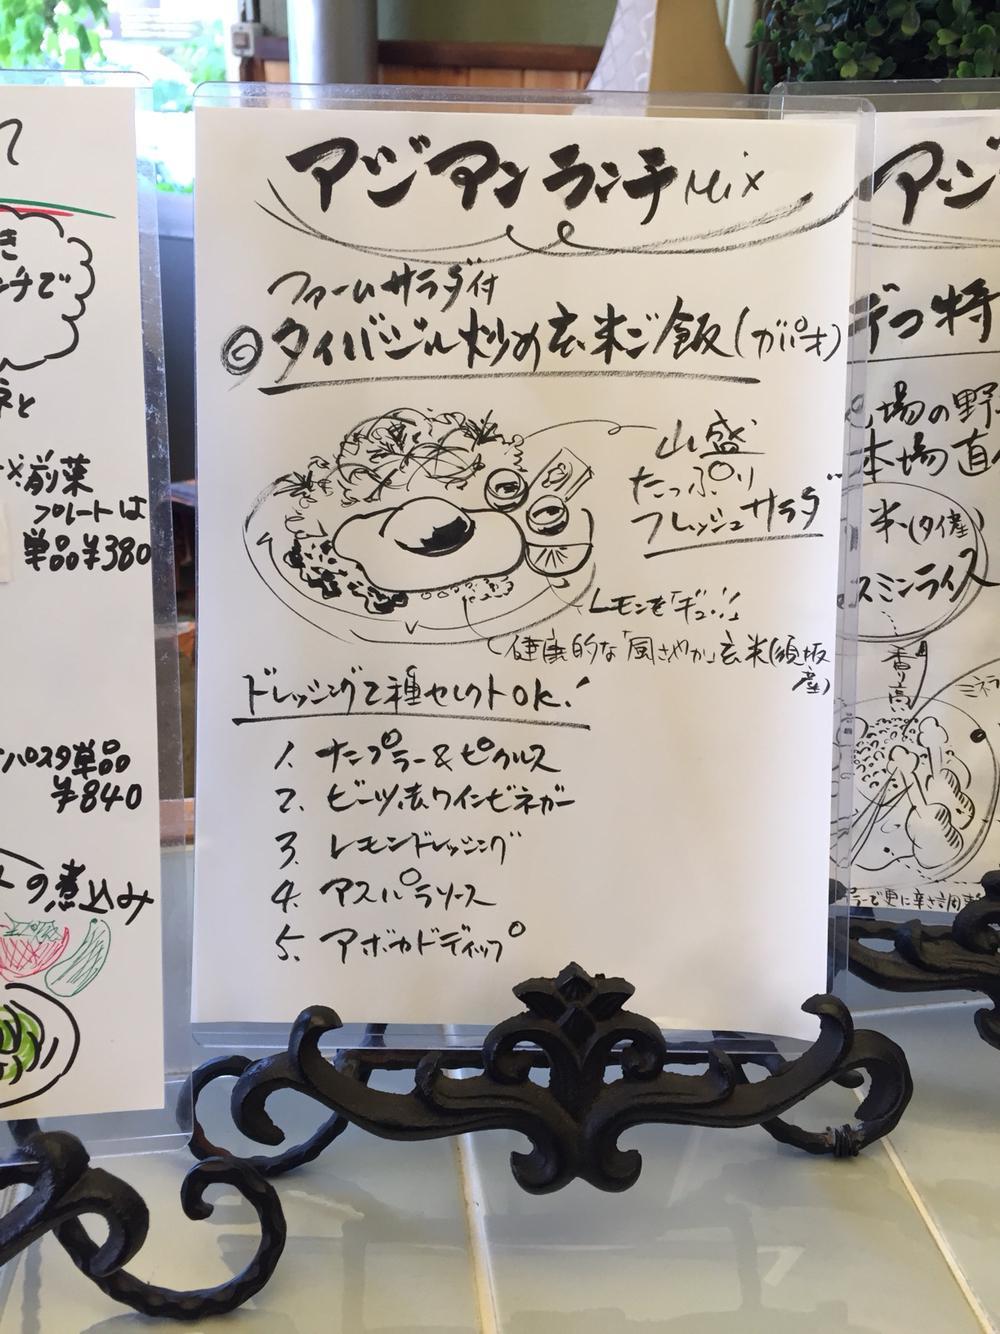 アジアンランチMix
ファームサラダ付
◎タイバジル炒め玄米ご飯(ガパオ)
山盛
たっぷり
フレッシュサラダ
レモンを「ギュッ」
健康的な「風さやか」玄米(須坂
産)
ドレッシング2種セレクトOK!
1. ナンプラー&ピクルス
2. ビーツ赤ワインビネガー
3. レモンドレッシング
4. アスパラソース
5. アボカドディップ
き
ンチで
ネと
※前菜
プレートは
単品¥380
パスタ単品
¥840
トの煮込み
アジ
デコ特
場の野
本場直
米(タイ産)
スミンライス
香り高
ミネラ
ラーで更に辛さ調